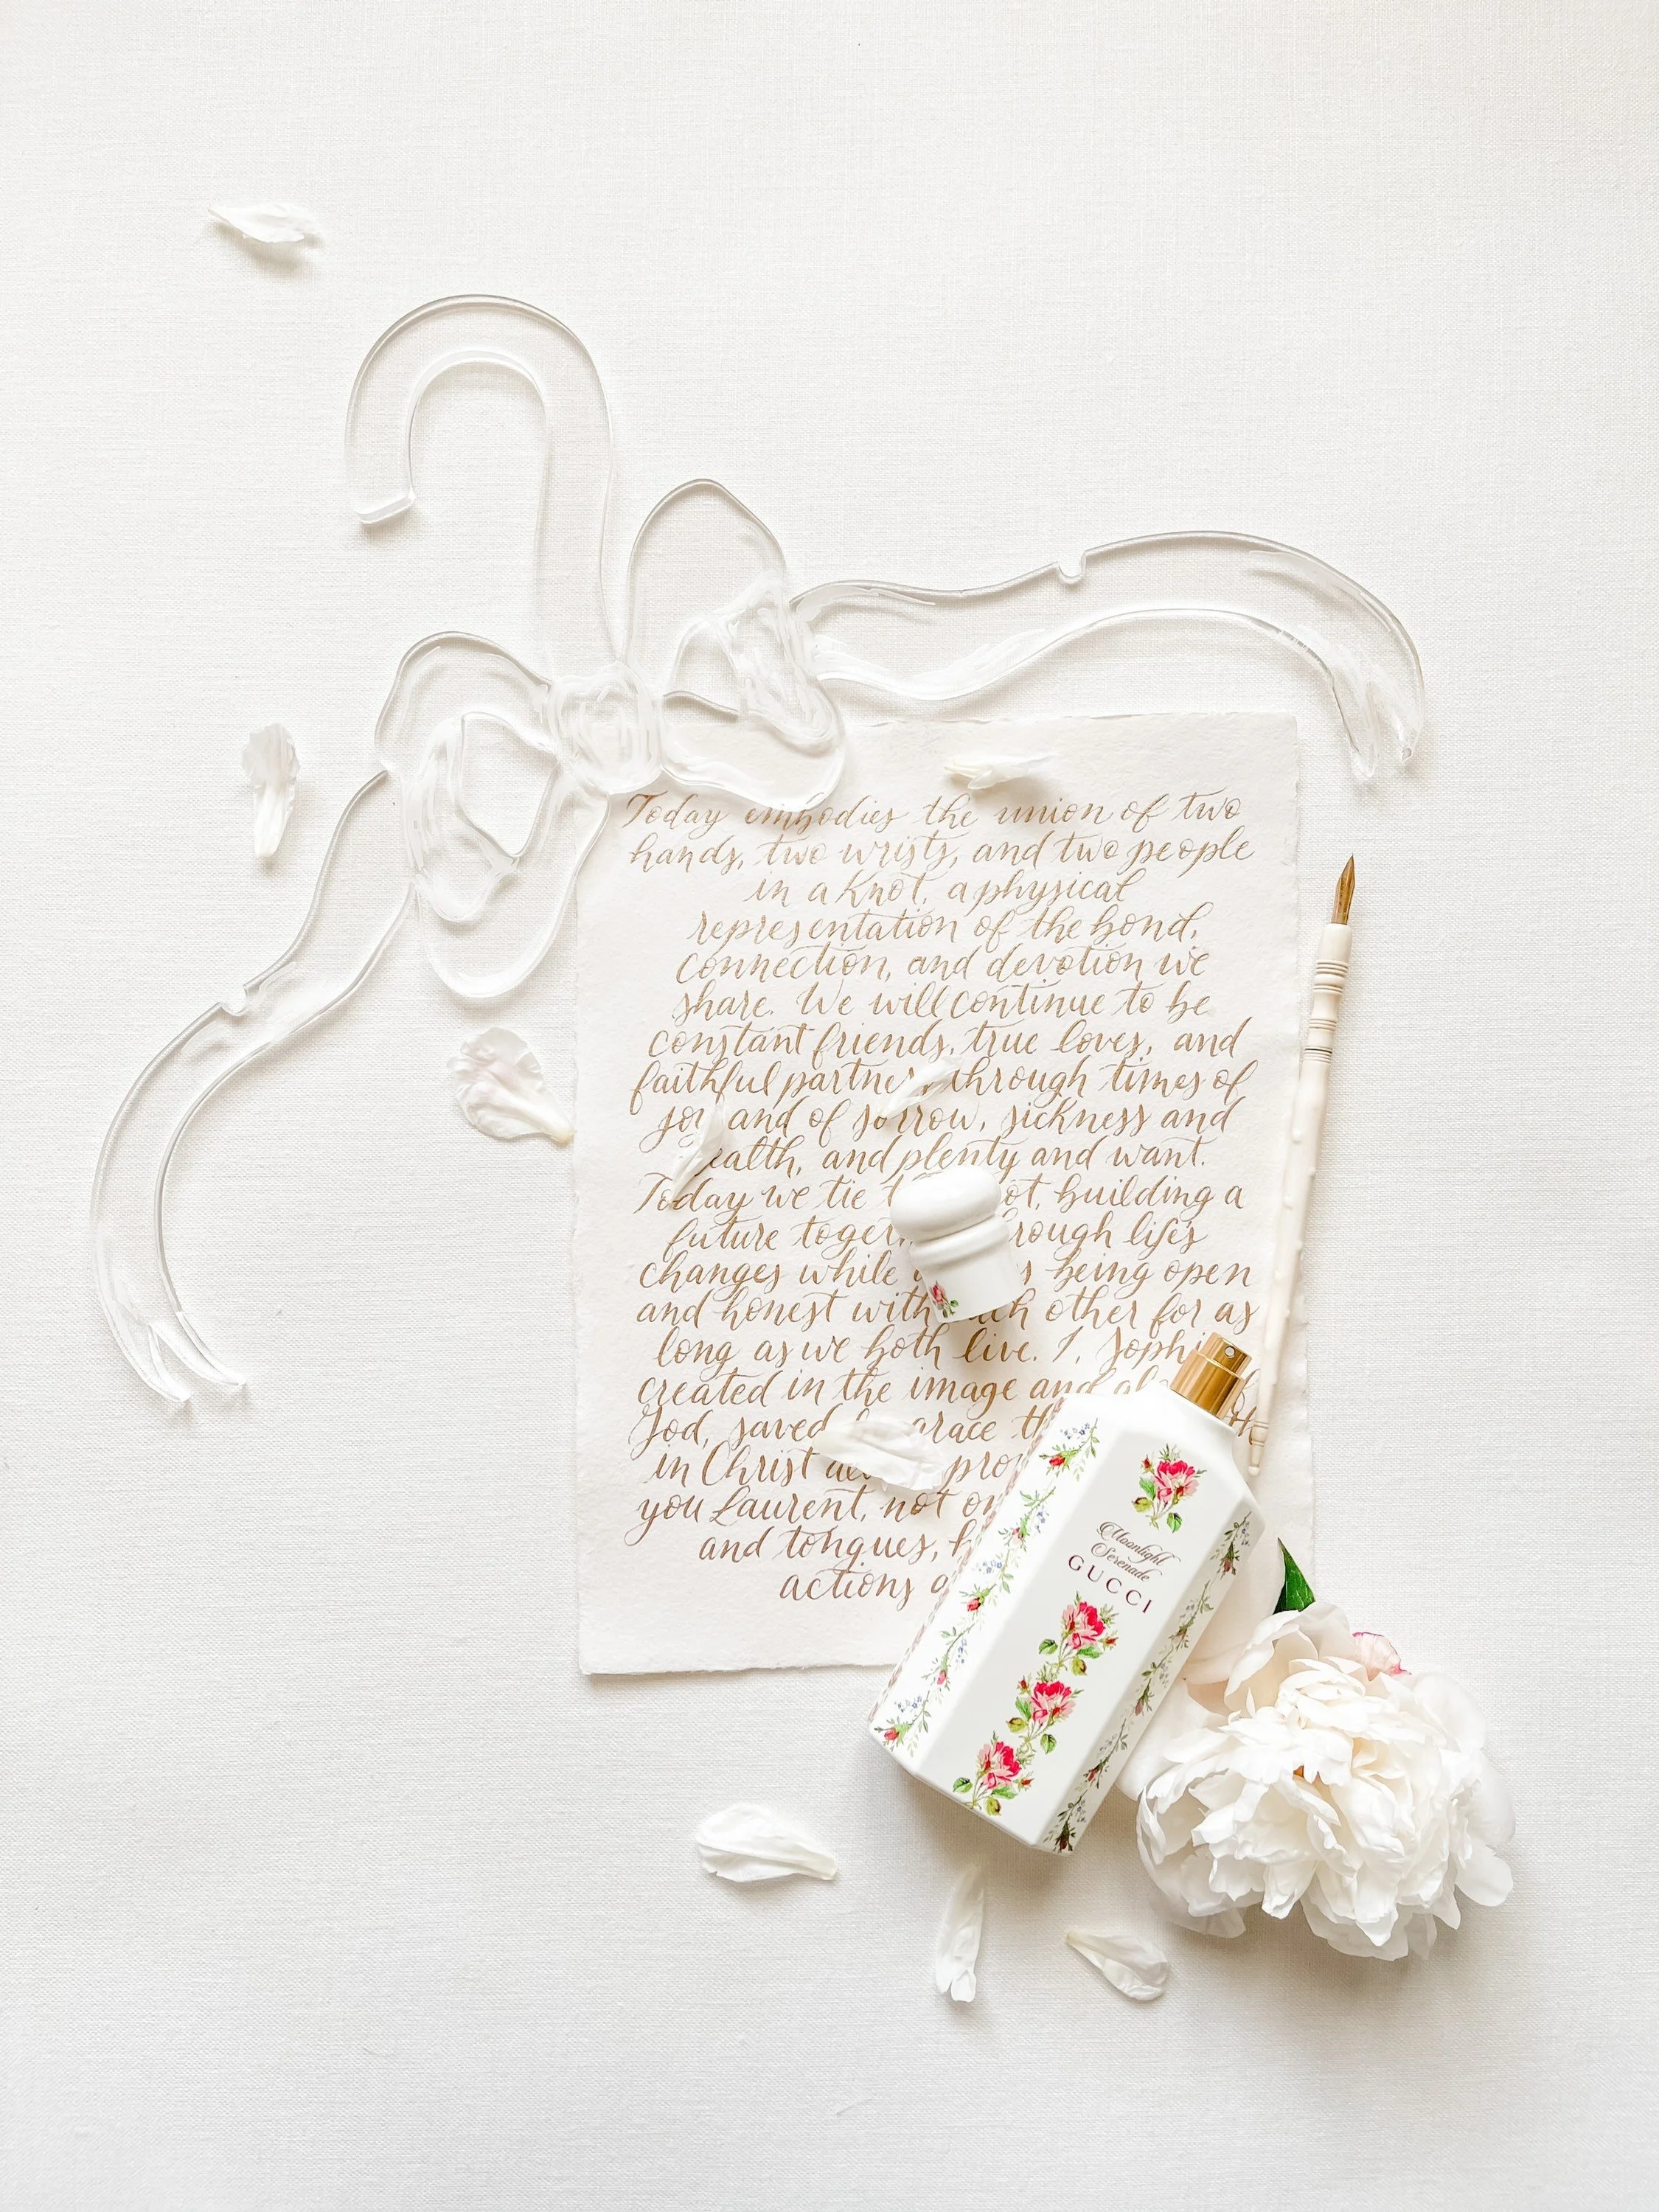 Today embodies the union of two
hands, two wrists, and two people
in a knot, a physical
representation of the bond,
connection, and devotion we
share. We will continue to be
constant friends, true loves, and
faithful partners through times of
joy and of sorrow, sickness and
ealth, and plenty and want.
Today we tie t ot, building a
future toge rough life's
changes while being open
and honest with ch other for as
long as we both live. I, Sophi
created in the image and
God, saved grace th
in Christ pro
you Laurent, not on
and tongues, h
actions
Moonlight
Serenade
GUCCI